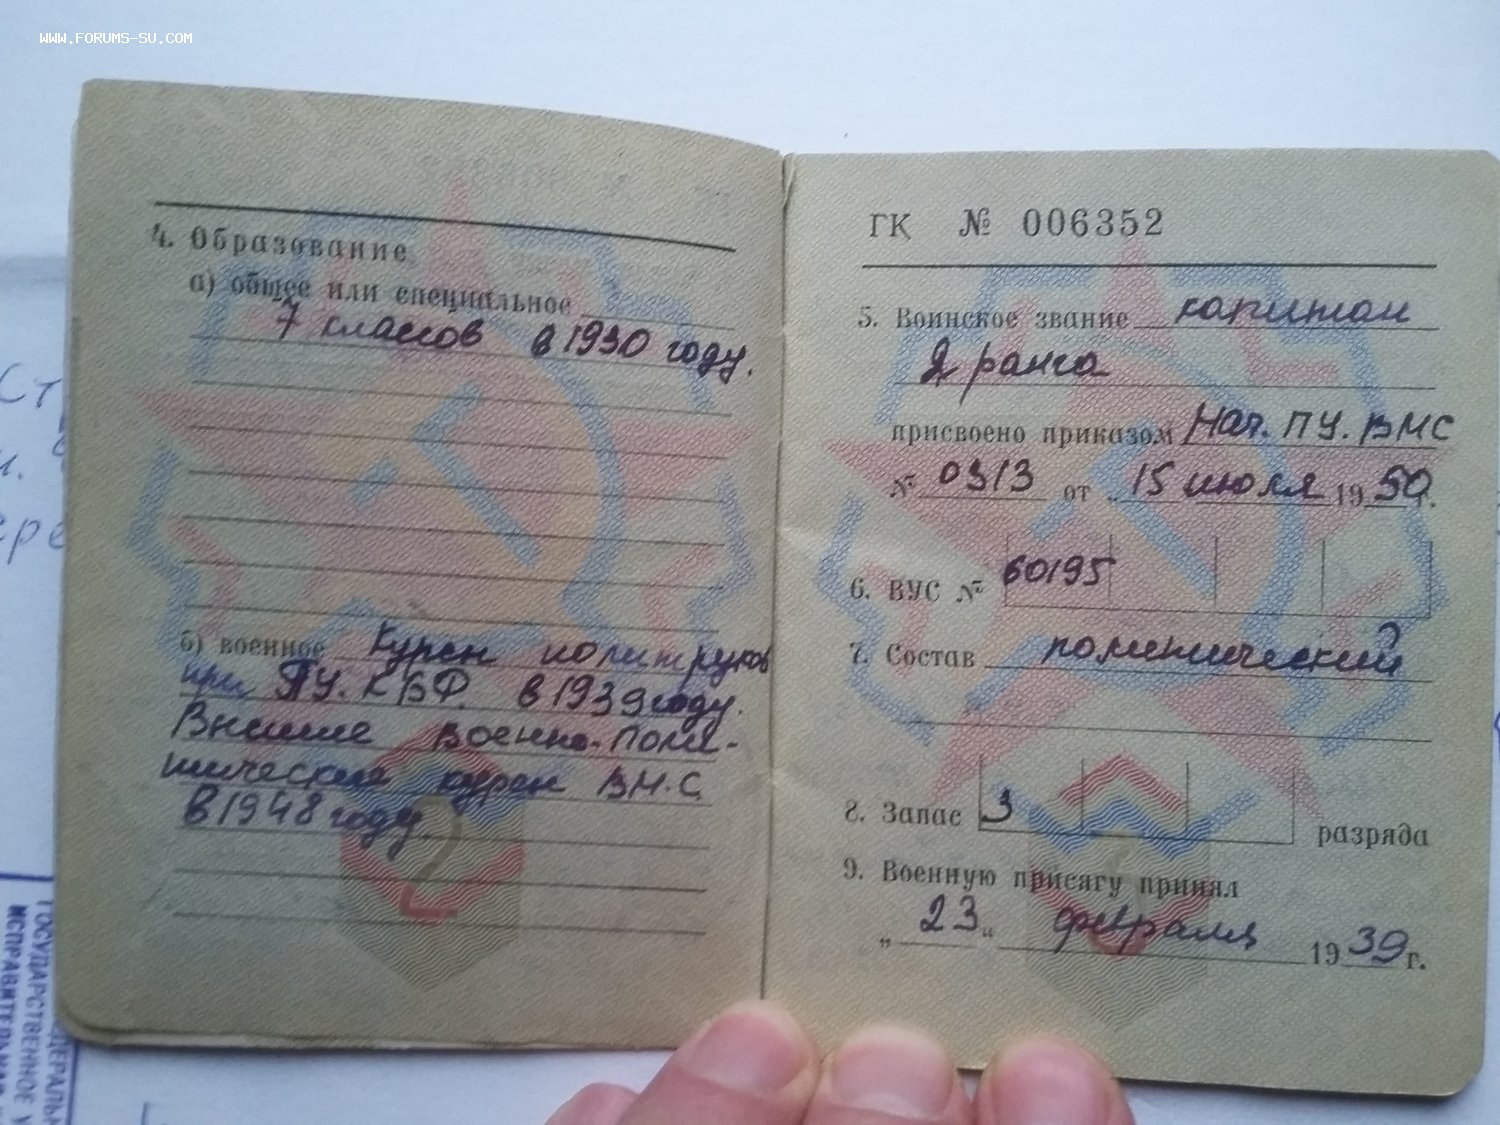 WWW.FORUMS-SU.COM
4. Образование
а) общее или специальное
7 классов в 1930 году.
б) военное Курсы политруков
при ПУ. КБФ. в 1939 году.
Высшие Военно-Поли-
тические курсы ВМ.С.
в 1948 году
ГК № 006352
5. Воинское звание капитан
2 ранга
присвоено приказом Нач. ПУ. ВМС
№ 0313 от „15 июля 1950 г.
6. ВУС № 60195
7. Состав политический
8. Запас 3 разряда
9. Военную присягу принял
„ 23 “ февраля 1939 г.
ГОСУДАРСТВЕННОЕ У
ИСПРАВИТЕЛЬНАЯ